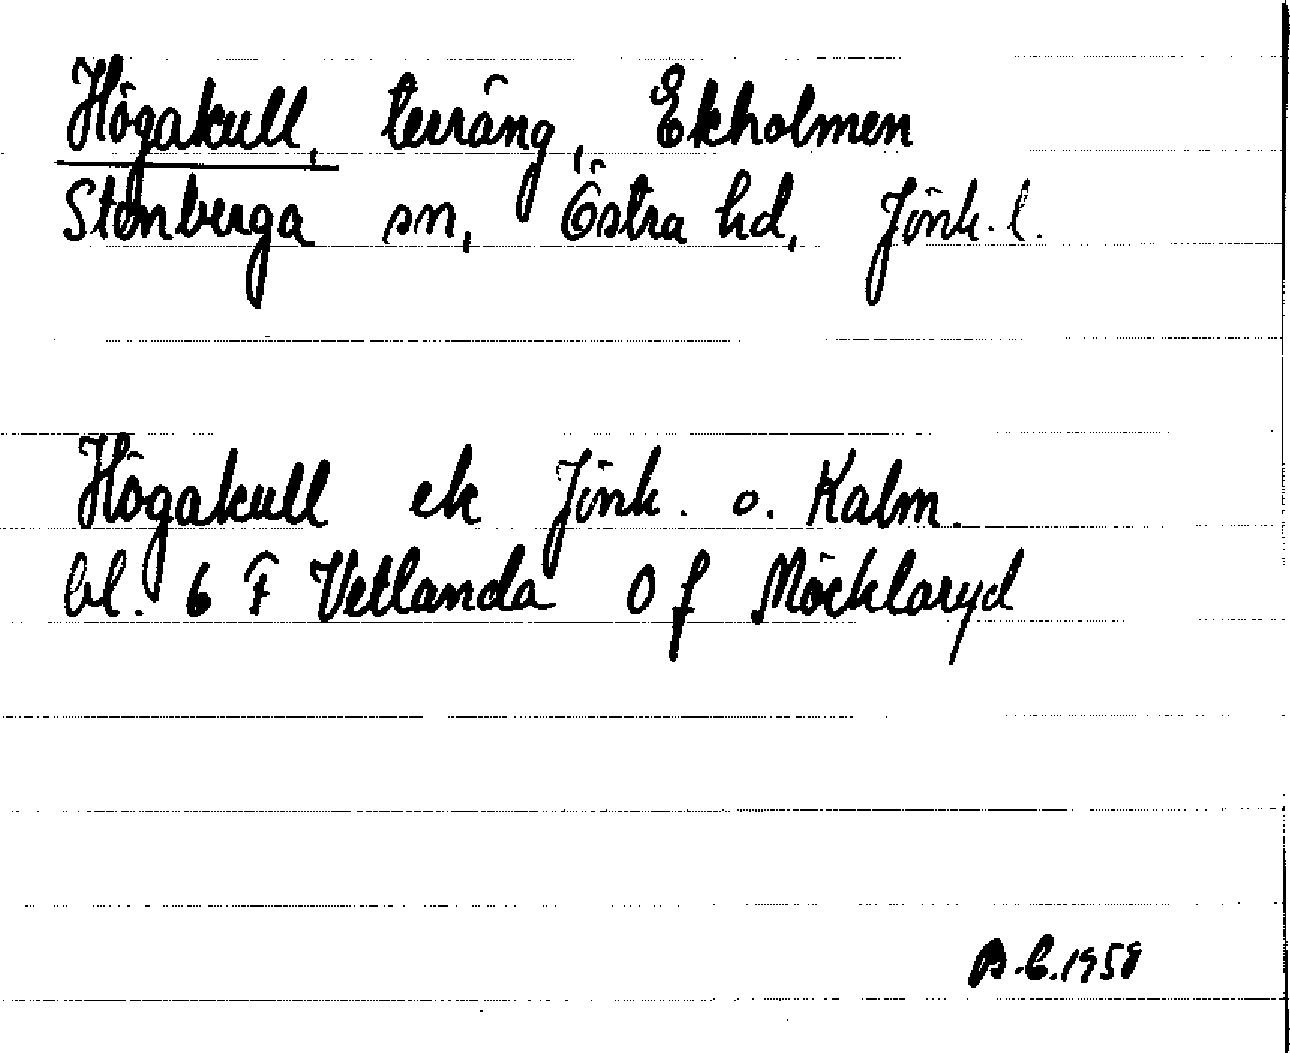 Högakull, terräng, Ekholmen
Stenberga sn, Östra hd, Jönk. l.
Högakull ek Jönk. o. Kalm.
bl. 6 F Vetlanda 0 f Möcklaryd
B.C. 1958